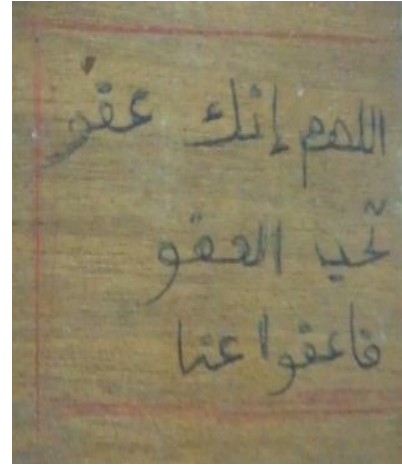 اللهم إنك عفو
تحب العفو
فاعفوا عنا